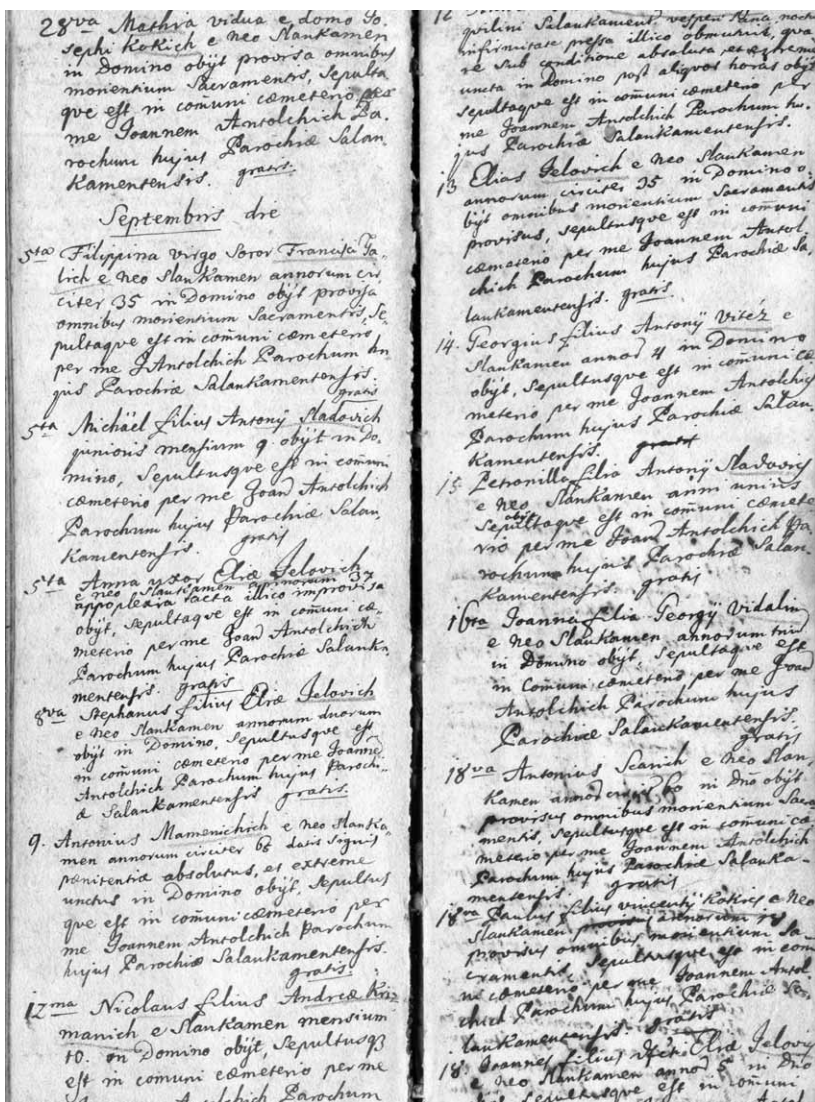 28va Mathia vidua e domo Jo,
sephi Kokich e neo Slankamen
in Domino obijt provisa omnibus
morientium Sacramentis, Sepulta
que est in comuni cæmeterio per
me Joannem Antolchich Pa,
rochum hujus Parochiæ Salan,
Kamentensis. gratis.
Septembris die
5ta Filippina virgo Soror Francisci
e neo Slankamen annorum cir
citer 35 in Domino obijt provisa
omnibus morientium Sacramentis, Se,
pultaque est in comuni cæmeterio
per me J Antolchich Parochum hu,
jus Parochiæ Salankamentensis.
gratis
5ta Michäel filius Antonij Sladovich
junioris mensium 9. obijt in Do,
mino, Sepultusque est in comuni
cæmeterio per me Joan Antolchich
Parochum hujus Parochiæ Salan,
Kamentensis. gratis
5ta Anna uxor Eliæ Jelovich
e neo Slankamen annorum 37
appoplexia tacta illico improvisa
obijt, Sepultaque est in comuni cæ,
meterio per me Joan Antolchich
Parochum hujus Parochiæ Salanka,
mentensis. gratis
8va Stephanus filius Eliæ Jelovich
e neo Slankamen annorum duorum
obijt in Domino, Sepultusque est
in comuni cæmeterio per me Joanne
Antolchich Parochum hujus Parochi,
æ Salankamentensis gratis.
9. Antonius Mamenichich e neo Slanka,
men annorum circiter datis signis
pænitentiæ absolutus, et extreme
unctus in Domino obijt, Sepultus
que est in comuni cæmeterio per
me Joannem Antolchich Parochum
hujus Parochiæ Salankamentensis.
gratis.
12ma Nicolaus filius Andreæ Kri
manich e Slankamen mensium
10. in Domino obijt, Sepultusq3
est in comuni cæmeterio per me
Antolchich Parochum
12
Salankament, vesperi Sana, nocte
infirmitate pressa illico obmutuit, qua
re sub conditione absoluta, et extreme
uncta in Domino post aliquot horas obijt
Sepultaque est in comuni cæmeterio per
me Joannem Antolchich Parochum hu,
jus Parochiæ Salankamentensis.
13 Elias Jelovich e neo Slankamen
annorum circiter 35 in Domino o,
bijt omnibus morientium Sacramentis
provisus, sepultusque est in comuni
cæmeterio per me Joannem Antol,
chich Parochum hujus Parochiæ Sa,
lankamentensis. gratis.
14. Georgius filius Antonij Vitéz e
Slankamen annor 4 in Domino
obijt, Sepultusque est in comuni cæ
meterio per me Joannem Antolchich
Parochum hujus Parochiæ Salan,
Kamentensis. gratis
15 Petronilla filia Antonij Sladovich
e neo Slankamen anni unius
obijt
Sepultaque est in comuni cæmete
rio per me Joan Antolchich Pa,
rochum hujus Parochiæ Salan,
Kamentensis. gratis
16ta Joanna filia Georgij Vidalin
e neo Slankamen annorum trium
in Domino obijt, Sepultaque est
in Comuni cæmeterio per me Joan
Antolchich Parochum hujus
Parochiæ Salankamentensis.
gratis
18va Antonius Scarich e neo Slan,
Kamen annor circiter 60 in Dno obijt
provisus omnibus morientium Sacra
mentis, Sepultusque est in comuni cæ
meterio per me Joannem Antolchich
Parochum hujus Parochiæ Salanka-
mentensis. gratis
18va Paulus filius vincentij Kokich e neo
Slankamen annorum
provisus omnibus morientium Sa-
cramentis, Sepultusque est in comu
ni cæmeterio per me Joannem Antol,
chich Parochum hujus Parochiæ Sa,
lankamentensis. gratis
18. Joannes filius Eliæ Jelovich
e neo Slankamen annor 5 in Dno
obijt Sepultusque est in comuni